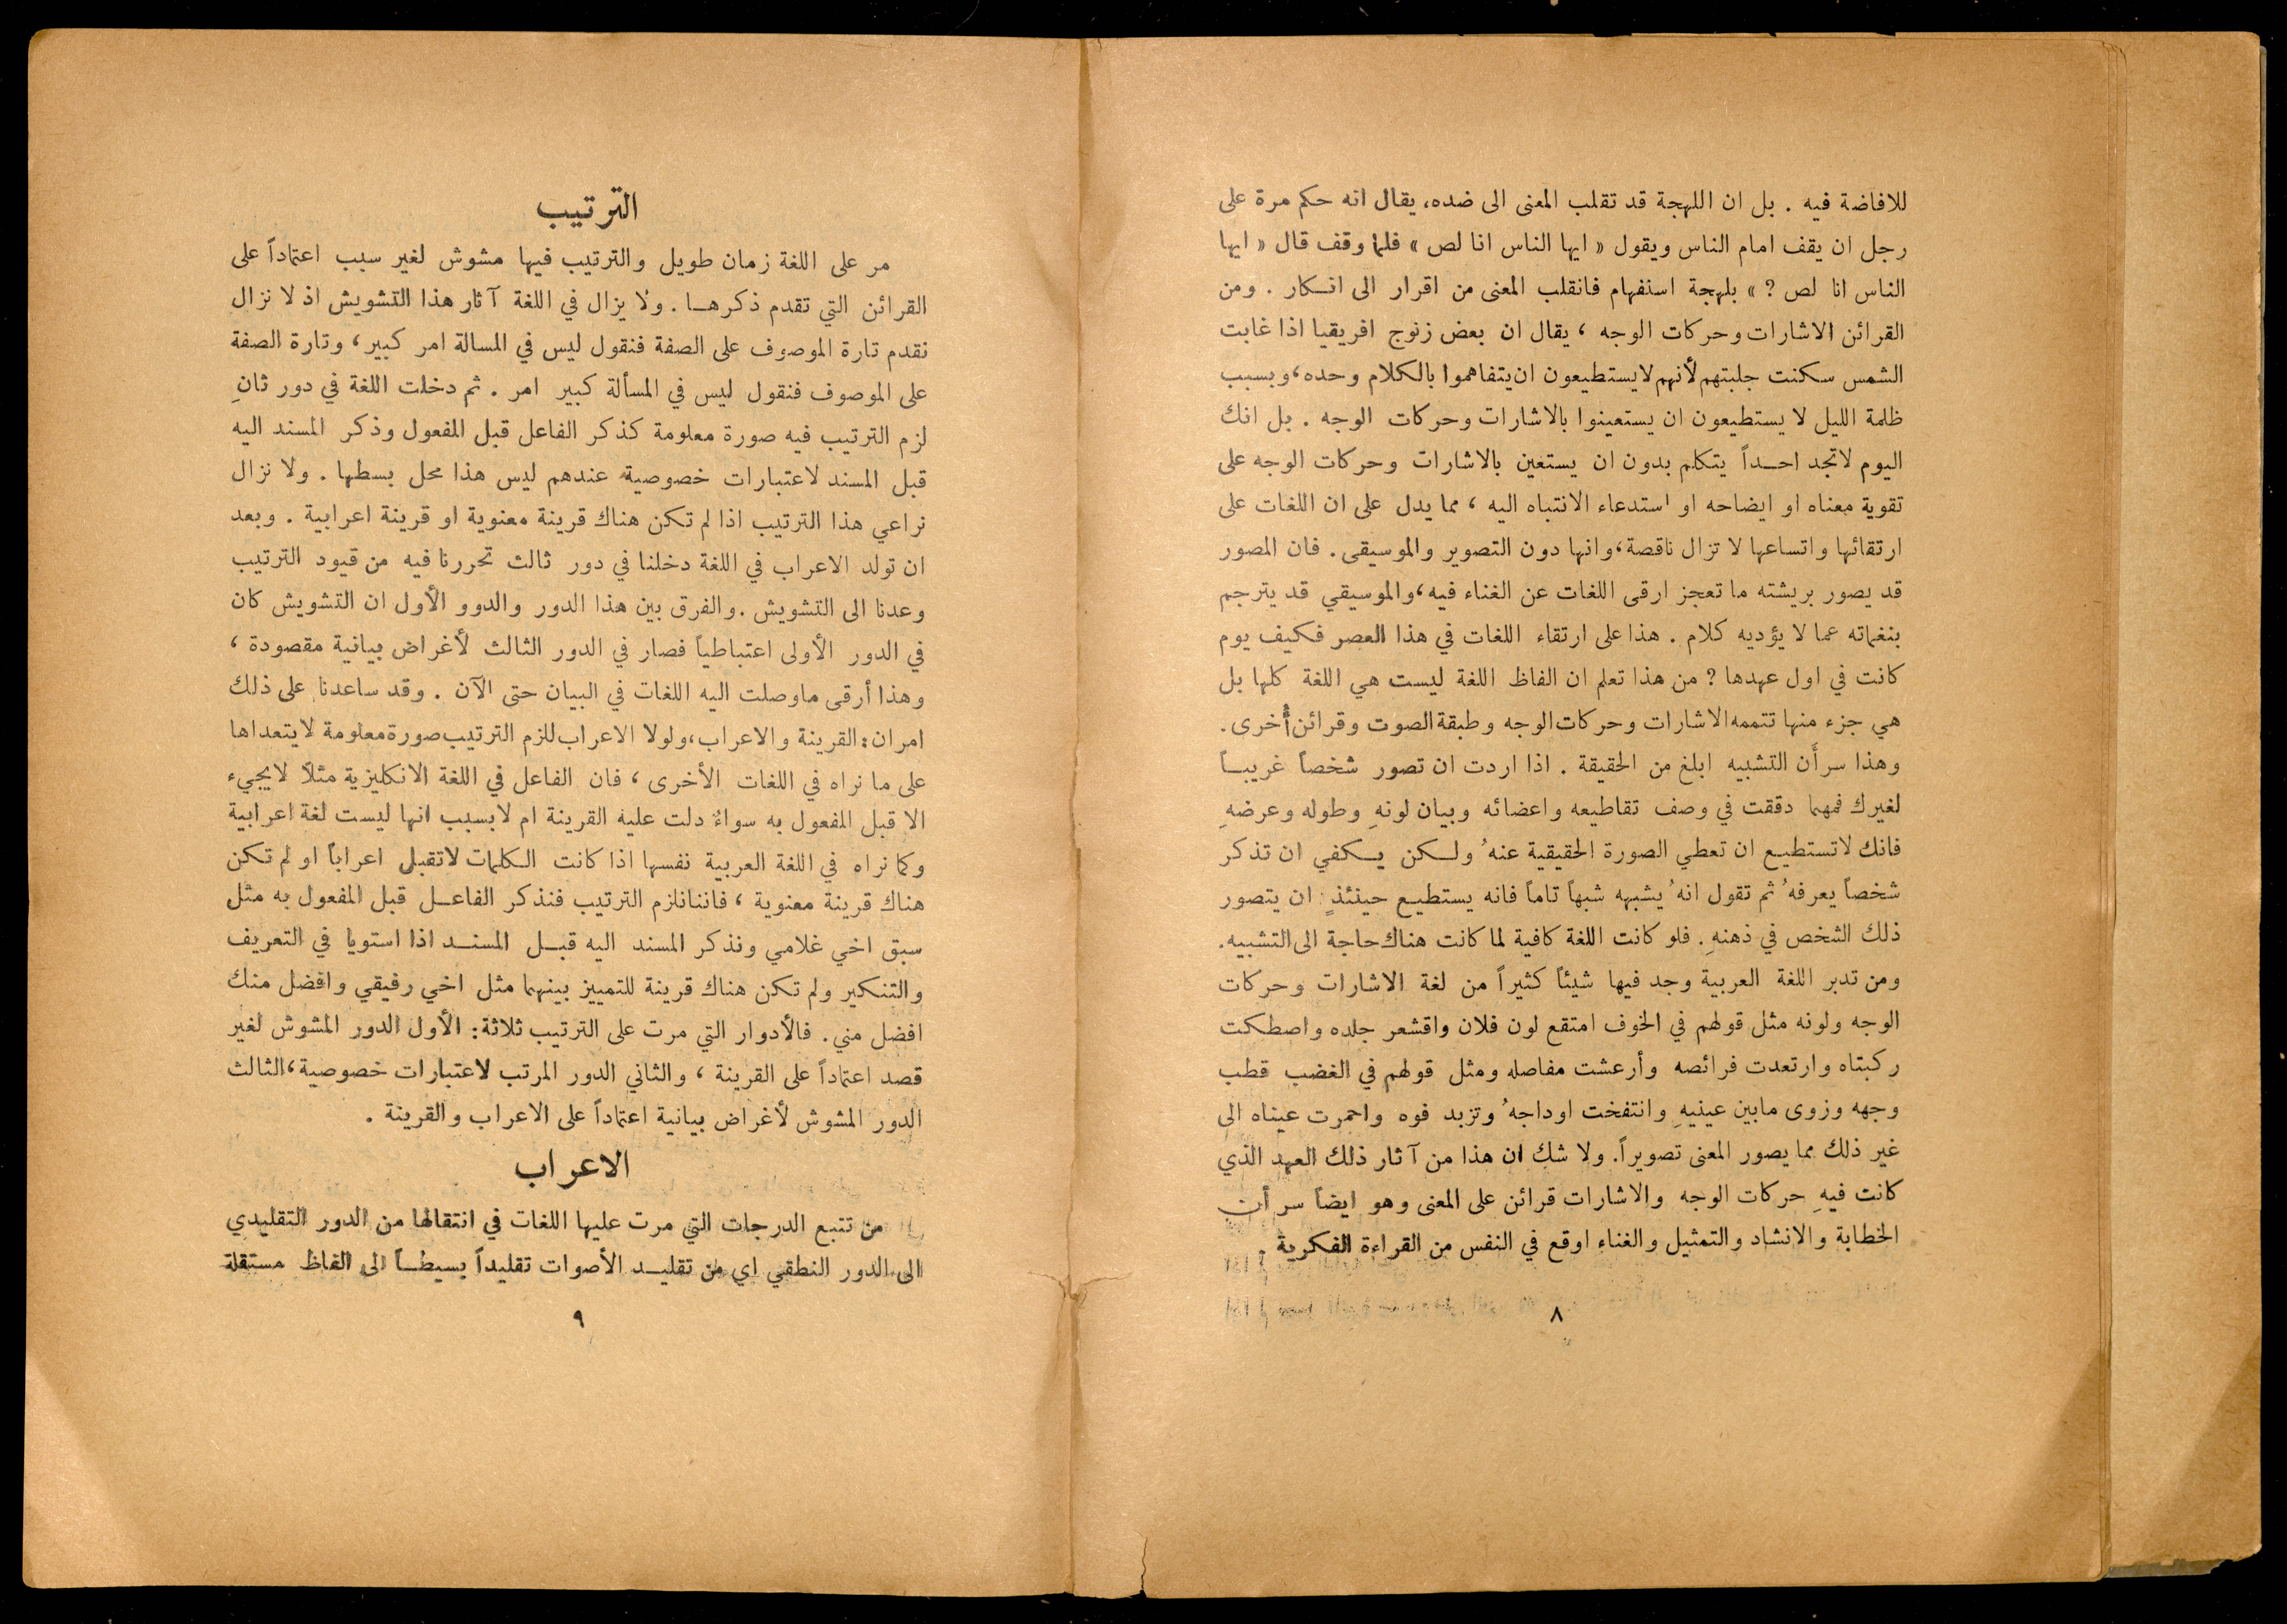 للافاضة فيه . بل ان اللهجة قد تقلب المعنى الى ضده، يقال انه حكم مرة على
رجل ان يقف امام الناس ويقول « ايها الناس انا لص » فلما وقف قال « ايها
الناس انا لص ? » بلهجة استفهام فانقلب المعنى من اقرار الى انكار . ومن
القرائن الاشارات وحركات الوجه ، يقال ان بعض زنوج افريقيا اذا غابت
الشمس سكنت جلبتهم لأنهم لا يستطيعون ان يتفاهموا بالكلام وحده، وبسبب
ظلمة الليل لا يستطيعون ان يستعينوا بالاشارات وحركات الوجه . بل انك
اليوم لا تجد احداً يتكلم بدون ان يستعين بالاشارات وحركات الوجه على
تقوية معناه او ايضاحه او استدعاء الانتباه اليه ، مما يدل على ان اللغات على
ارتقائها واتساعها لا تزال ناقصة، وانها دون التصوير والموسيقى . فان المصور
قد يصور بريشته ما تعجز ارقى اللغات عن الغناء فيه، والموسيقي قد يترجم
بنغماته عما لا يؤديه كلام . هذا على ارتقاء اللغات في هذا العصر فكيف يوم
كانت في اول عهدها ? من هذا تعلم ان الفاظ اللغة ليست هي اللغة كلها بل
هي جزء منها تتممه الاشارات وحركات الوجه وطبقة الصوت وقرائن أُخرى .
وهذا سر أَن التشبيه ابلغ من الحقيقة . اذا اردت ان تصور شخصاً غريباً
لغيرك فمهما دققت في وصف تقاطيعه واعضائه وبيان لونهِ وطوله وعرضهِ
فانك لا تستطيع ان تعطي الصورة الحقيقية عنهُ ولكن يكفي ان تذكر
شخصاً يعرفهُ ثم تقول انهُ يشبهه شبهاً تاماً فانه يستطيع حينئذٍ ان يتصور
ذلك الشخص في ذهنهِ . فلو كانت اللغة كافية لما كانت هناك حاجة الى التشبيه .
ومن تدبر اللغة العربية وجد فيها شيئاً كثيراً من لغة الاشارات وحركات
الوجه ولونه مثل قولهم في الخوف امتقع لون فلان واقشعر جلده واصطكت
ركبتاه وارتعدت فرائصه وأرعشت مفاصله ومثل قولهم في الغضب قطب
وجهه وزوى ما بين عينيهِ وانتفخت اوداجهُ وتزبد فوه واحمرت عيناه الى
غير ذلك مما يصور المعنى تصويراً . ولا شك ان هذا من آثار ذلك العهد الذي
كانت فيهِ حركات الوجه والاشارات قرائن على المعنى وهو ايضاً سر أن
الخطابة والانشاد والتمثيل والغناء اوقع في النفس من القراءة الفكرية .
٨
الترتيب
مر على اللغة زمان طويل والترتيب فيها مشوش لغير سبب اعتماداً على
القرائن التي تقدم ذكرها . ولا يزال في اللغة آثار هذا التشويش اذ لا نزال
نقدم تارة الموصوف على الصفة فنقول ليس في المسالة امر كبير ، وتارة الصفة
على الموصوف فنقول ليس في المسألة كبير امر . ثم دخلت اللغة في دور ثانٍ
لزم الترتيب فيه صورة معلومة كذكر الفاعل قبل المفعول وذكر المسند اليه
قبل المسند لاعتبارات خصوصية عندهم ليس هذا محل بسطها . ولا نزال
نراعي هذا الترتيب اذا لم تكن هناك قرينة معنوية او قرينة اعرابية . وبعد
ان تولد الاعراب في اللغة دخلنا في دور ثالث تحررنا فيه من قيود الترتيب
وعدنا الى التشويش . والفرق بين هذا الدور والدوو الأول ان التشويش كان
في الدور الأولى اعتباطياً فصار في الدور الثالث لأغراض بيانية مقصودة ،
وهذا أرقى ما وصلت اليه اللغات في البيان حتى الآن . وقد ساعدنا على ذلك
امران : القرينة والاعراب، ولولا الاعراب للزم الترتيب صورة معلومة لا يتعداها
على ما نراه في اللغات الأخرى ، فان الفاعل في اللغة الانكليزية مثلاً لا يجيء
الا قبل المفعول به سواءٌ دلت عليه القرينة ام لا بسبب انها ليست لغة اعرابية
وكما نراه في اللغة العربية نفسها اذا كانت الكلمات لا تقبل اعراباً او لم تكن
هناك قرينة معنوية ، فاننا نلزم الترتيب فنذكر الفاعل قبل المفعول به مثل
سبق اخي غلامي ونذكر المسند اليه قبل المسند اذا استويا في التعريف
والتنكير ولم تكن هناك قرينة للتمييز بينهما مثل اخي رفيقي وافضل منك
افضل مني . فالأدوار التي مرت على الترتيب ثلاثة : الأول الدور المشوش لغير
قصد اعتماداً على القرينة ، والثاني الدور المرتب لاعتبارات خصوصية، الثالث
الدور المشوش لأغراض بيانية اعتماداً على الاعراب والقرينة .
الاعراب
من تتبع الدرجات التي مرت عليها اللغات في انتقالها من الدور التقليدي
الى الدور النطقي اي من تقليد الأصوات تقليداً بسيطاً الى الفاظ مستقلة
٩